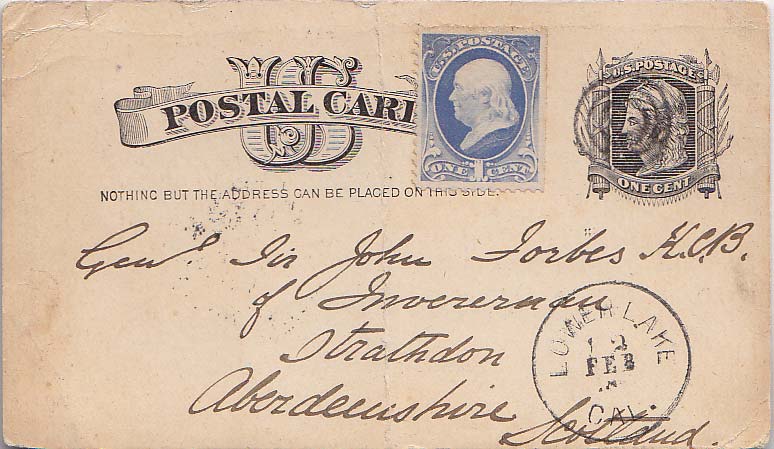 U.S. POSTAGE
U.S. POSTAGE
US
POSTAL CAR
ONE CENT
1
ONE CENT
NOTHING BUT THE ADDRESS CAN BE PLACED ON THIS SIDE.
Genl. Sir John Forbes K.C.B.
of Inverernan
Strathdon
Aberdeenshire
Scotland.
LOWER LAKE
12
FEB
CAL.